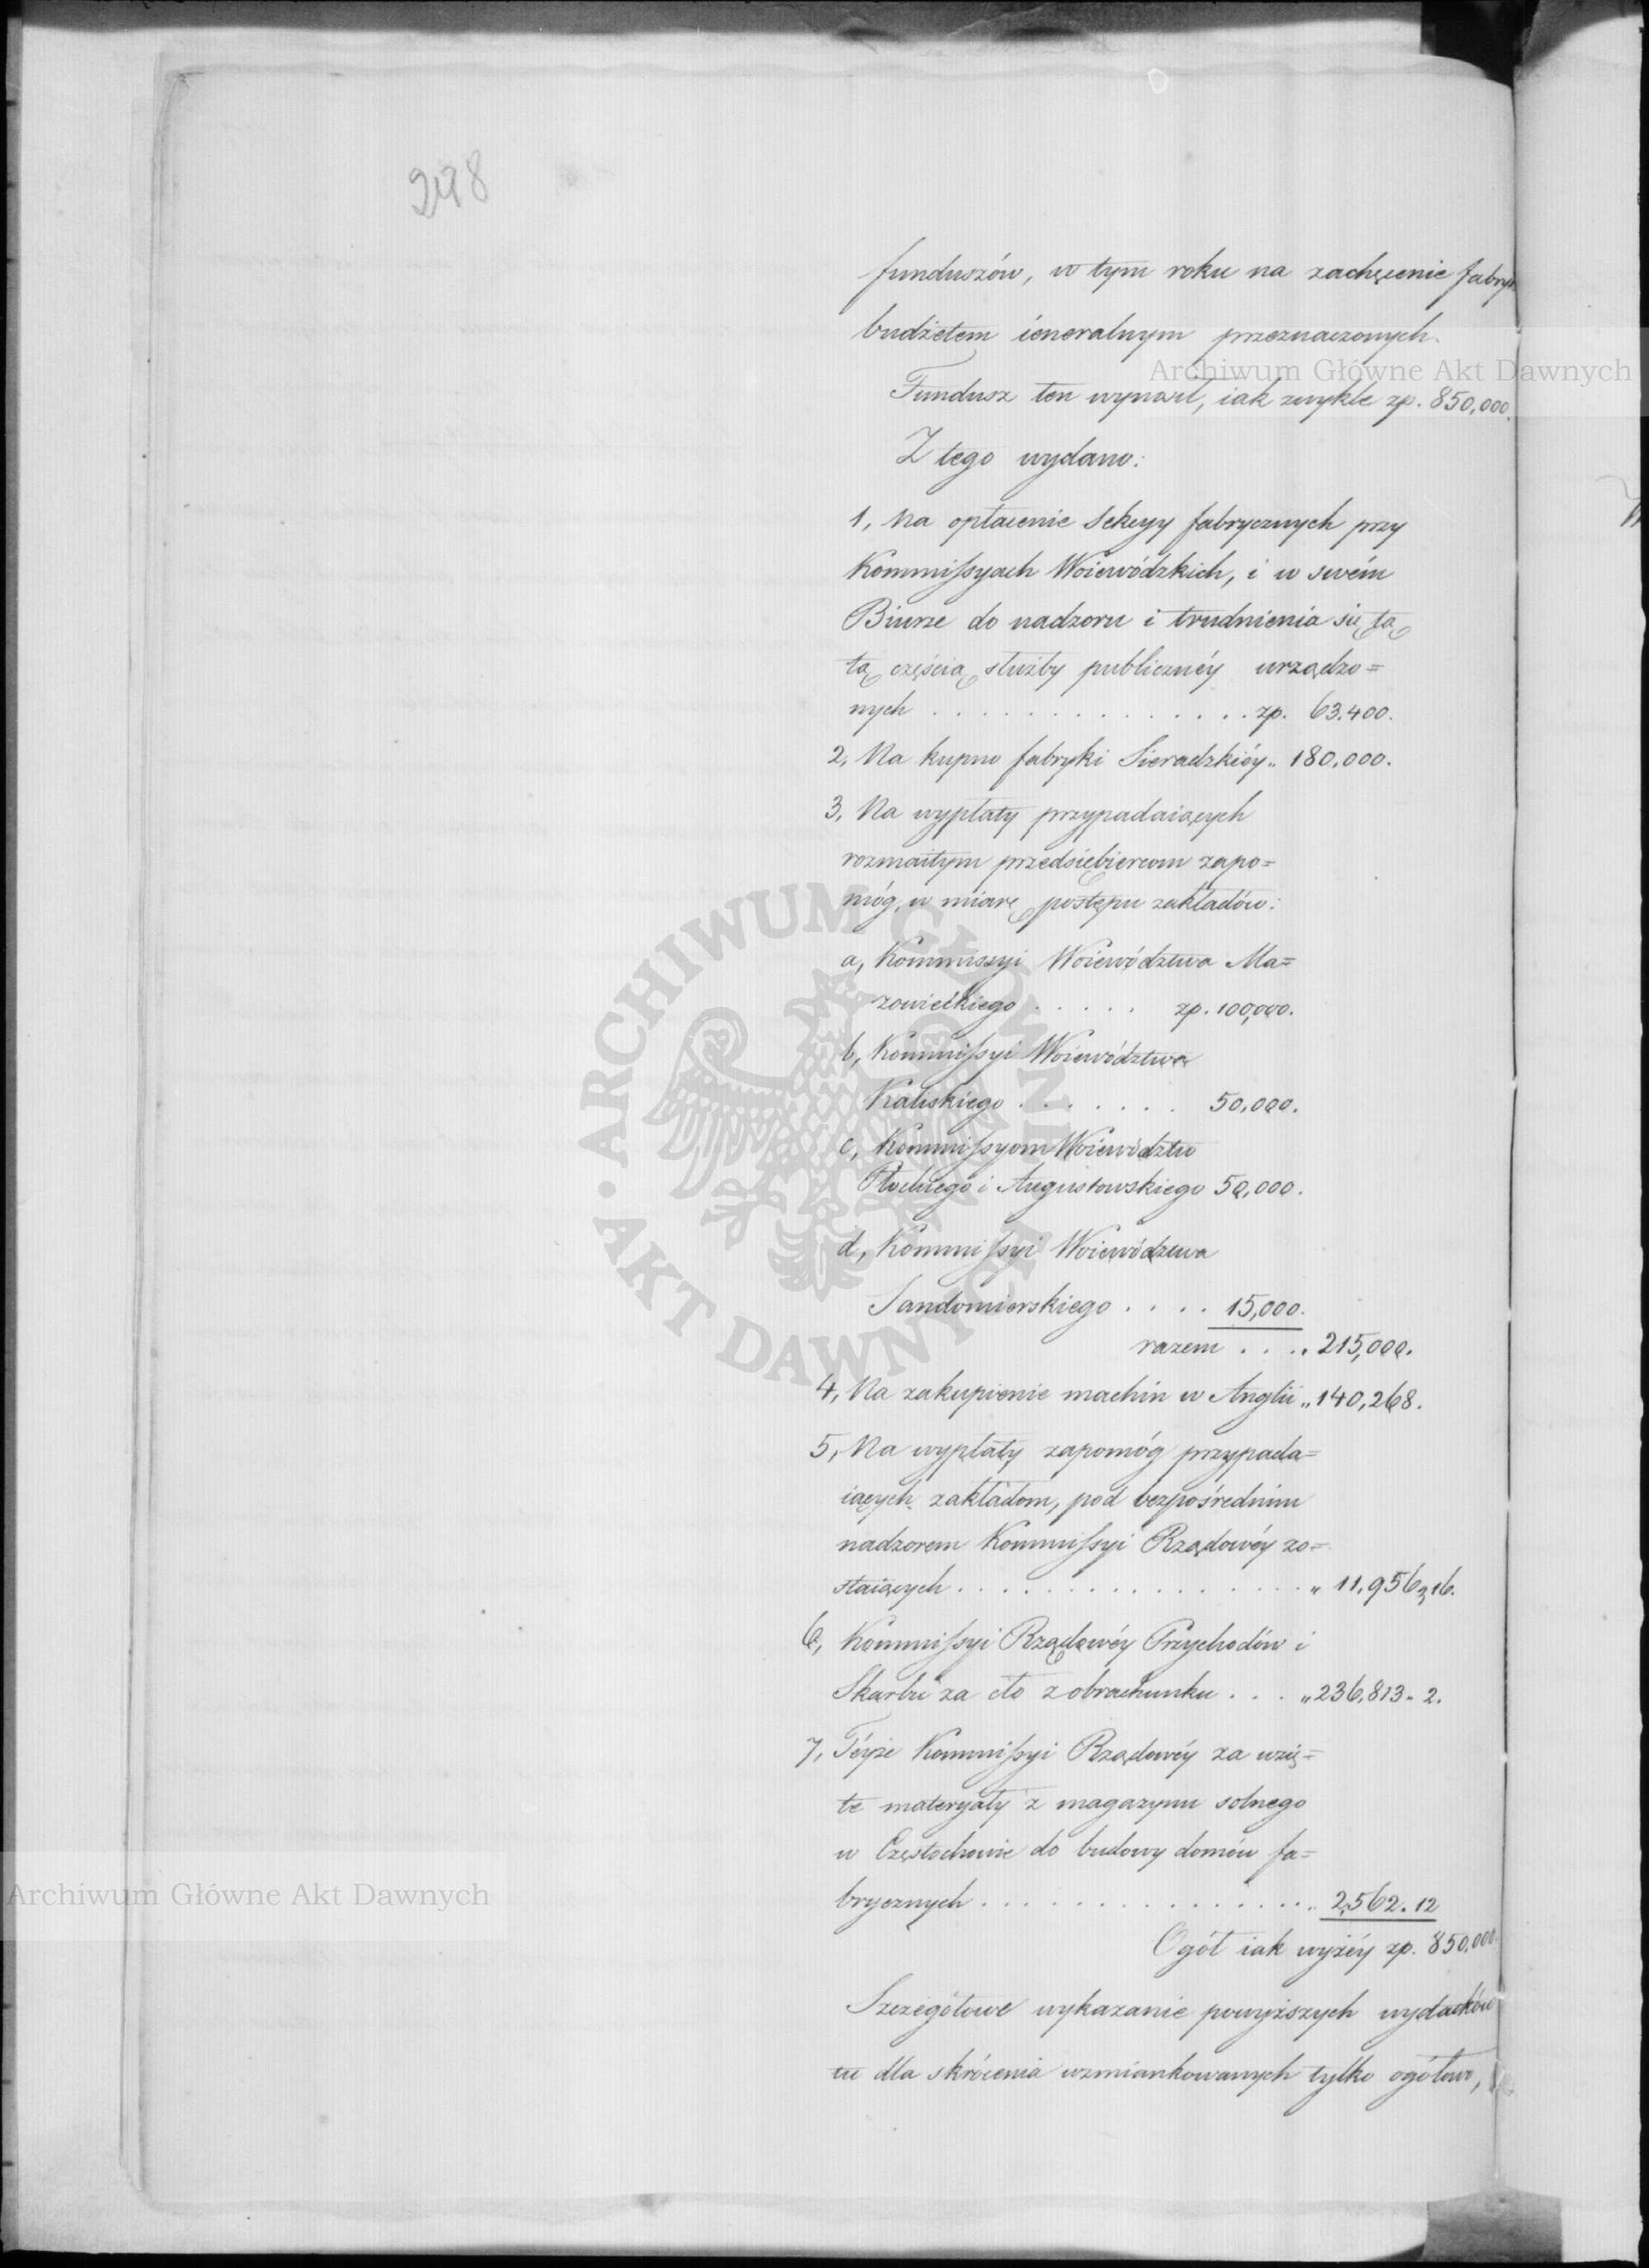 298
funduszów, w tym roku na zachęcenie fabryk
budżetem ieneralnym przeznaczonych.
Archiwum Główne Akt Dawnych
Fundusz ten wynosił, iak zwykle zp. 850,000.
Z tego wydano:
1, Na opłacenie Sekcyy fabrycznych przy
Kommissyach Woiewódzkich, i w swém
Biurze do nadzoru i trudnienia się tą
tą częścią służby publicznéy urządzo=
nych . . . . . . . . . . . . . . zp. 63.400.
2, Na kupno fabryki Sieradzkiéy „ 180,000.
3, Na wypłaty przypadaiących
rozmaitym przedsiębiercom zapo=
móg, w miarę postępu zakładów:
a, Kommissyi Woiewództwa Ma=
zowieckiego . . . . . zp. 100,000.
b, Kommissyi Woiewództwa
Kaliskiego . . . . . . . 50,000.
c, Kommissyom Woiewództw
Płockiego i Augustowskiego 50,000.
d, Kommissyi Woiewództwa
Sandomierskiego . . . . 15,000.
razem . . . „ 215,000.
4, Na zakupienie machin w Anglii „ 140,268.
5, Na wypłaty zapomóg przypada=
iących zakładom, pod bezpośrednim
nadzorem Kommissyi Rządowéy zo=
staiących . . . . . . . . . . . . . . . . „ 11,956 „ 16.
6, Kommissyi Rządowéy Przychodów i
Skarbu za cło z obrachunku . . . „ 236,813 „ 2.
7, Téyże Kommissyi Rządowéy za wzię=
te materyały z magazynu solnego
w Częstochowie do budowy domów fa=
Archiwum Główne Akt Dawnych
brycznych . . . . . . . . . . . . . . . „ 2,562. 12
Ogół iak wyżéy zp. 850,000.
Szczegółowe wykazanie powyższych wydatków
tu dla skrócenia wzmiankowanych tylko ogółowo,
ARCHIWUM GŁÓWNE
AKT DAWNYCH